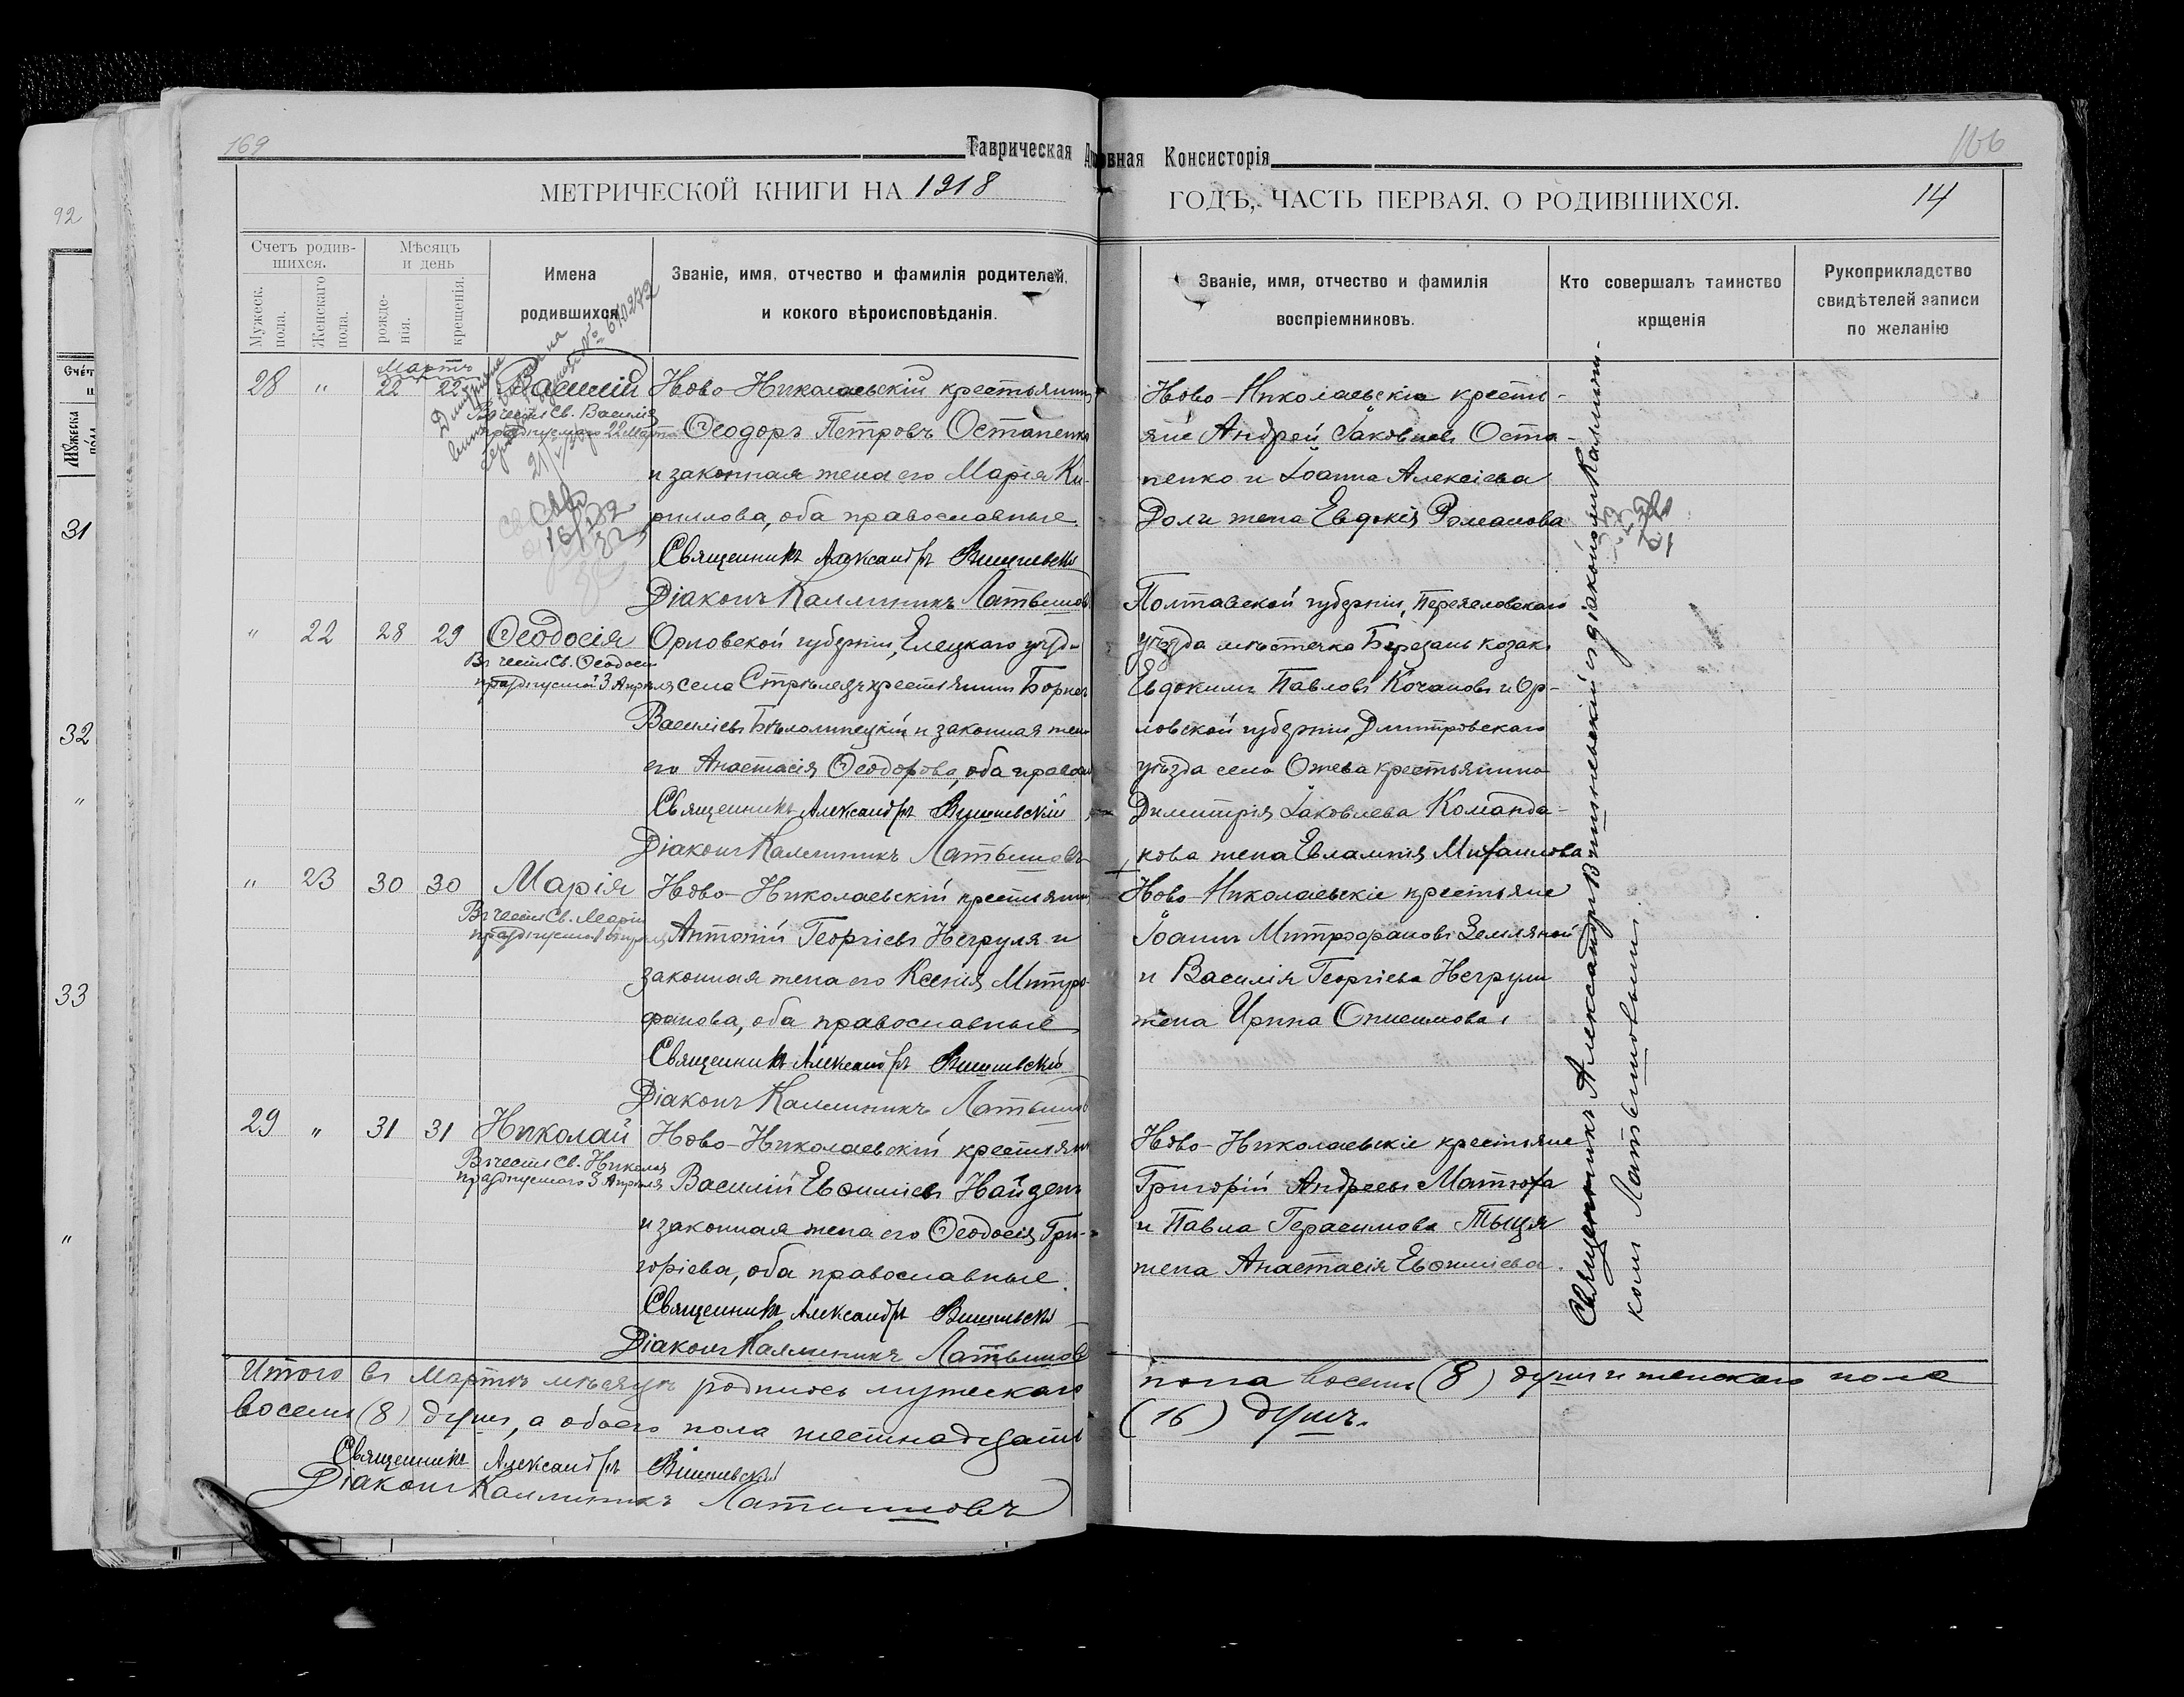 169
Таврическая Духовная Консисторія
166
МЕТРИЧЕСКОЙ КНИГИ НА 1918
ГОДЪ, ЧАСТЬ ПЕРВАЯ, О РОДИВШИХСЯ.
14
92
Счетъ родив-
шихся.
Мужеск. пола.
Женскаго пола.
Мѣсяцъ
и день
рожде-
нія.
крещенія.
Имена
родившихся
Званіе, имя, отчество и фамилія родителей,
и кокого вѣроисповѣданія.
Званіе, имя, отчество и фамилія
воспріемниковъ.
Кто совершалъ таинство
крщенія
Рукоприкладство
свидѣтелей записи
по желанію
31
32
"
33
"
Мартъ
28 " 22 22 Василій
Въ честь Св. Василія
празднуемаго 22 Марта
Ново-Николаевскій крестьянинъ
Ѳеодоръ Петровъ Остапенко
и законная жена его Марія Ки-
риллова, оба православные.
Священникъ Александръ Вишневскій
Діаконъ Каллиникъ Латышовъ
Ново-Николаевскіе кресть-
яне Андрей Іаковлевъ Оста-
пенко и Іоанна Алексіева
Доли жена Евдокія Романова
" 22 28 29 Ѳеодосія
Въ честь Св. Ѳеодосіи
празднуемой 3 Апрѣля
Орловской губерніи, Елецкаго уѣзда
села Стрѣлецъ крестьянинъ Борисъ
Василіевъ Бѣлолипецкій и законная жена
его Анастасія Ѳеодорова, оба правосл
Священникъ Александръ Вишневскій
Діаконъ Каллиникъ Латышовъ
Полтавской губерніи, Переяславскаго
уѣзда мѣстечка Березань козакъ
Евдокимъ Павловъ Кочановъ и Ор-
ловской губерніи Дмитровскаго
уѣзда села Ожева крестьянина
Димитрія Іаковлева Команда-
кова жена Евлампія Михаилова
" 23 30 30 Марія
Въ честь Св. Маріи
празднуемой 1 Апрѣля
Ново-Николаевскій крестьянинъ
Антоній Георгіевъ Негруля и
законная жена его Ксенія Митро-
фанова, оба православные
Священникъ Александръ Вишневскій
Діаконъ Каллиникъ Латышовъ
Ново-Николаевскіе крестьяне
Іоаннъ Митрофановъ Земляной
и Василія Георгіева Негрули
жена Ирина Онисимова.
29 " 31 31 Николай
Въ честь Св. Николая
празднуемаго 3 Апрѣля
Ново-Николаевскій крестьянинъ
Василій Евѳиміевъ Найденъ
и законная жена его Ѳеодосія Гри-
горіева, оба православные.
Священникъ Александръ Вишневскій
Діаконъ Каллиникъ Латышовъ
Ново-Николаевскіе крестьяне
Григорій Андреевъ Матюха
и Павла Герасимова Тыця
жена Анастасія Евѳиміева.
Священникъ Александръ Вишневскій съ діакономъ Каллини-
комъ Латышовымъ.
Итого въ Мартѣ мѣсяцѣ родилось мужескаго
пола восемь (8) душъ и женскаго пола
восемь (8) душъ, а обоего пола шестнадцать
(16) душъ.
Священникъ Александръ Вишневскій
Діаконъ Каллиникъ Латышовъ